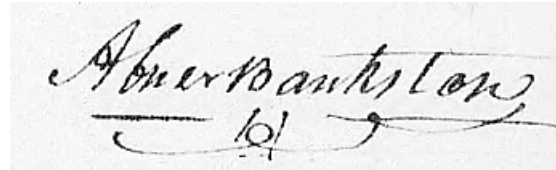 Abner Bankston